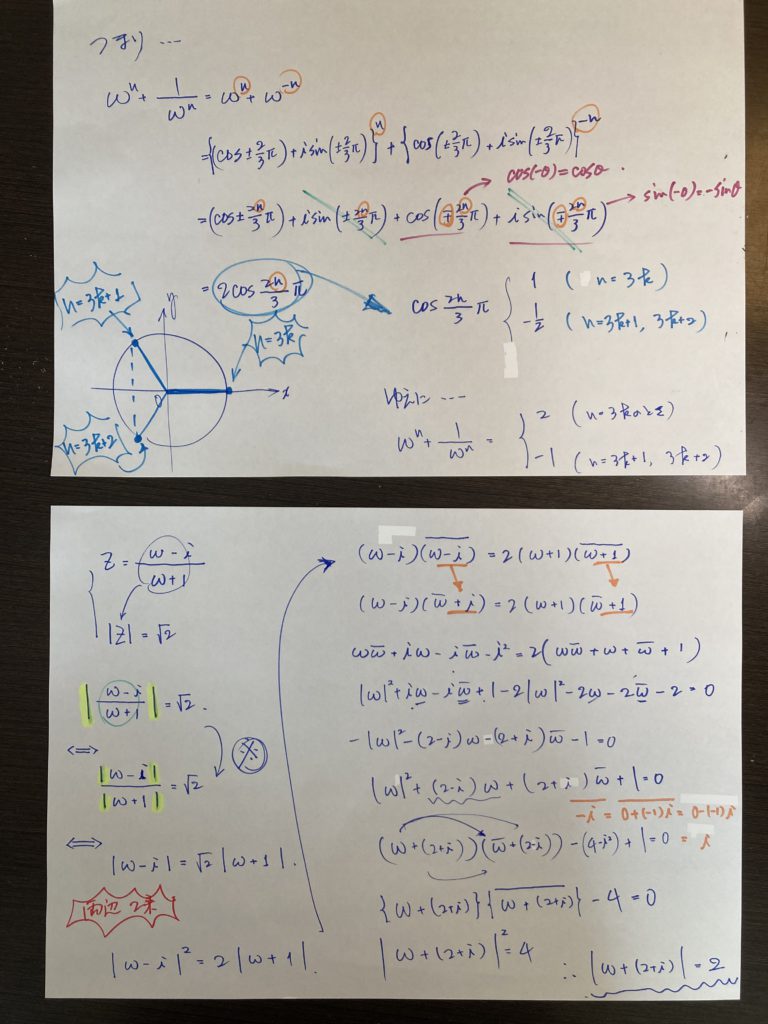 つまり…
ωⁿ + 1/ωⁿ = ωⁿ + ω⁻ⁿ
= {(cos ± 2/3 π) + i sin(± 2/3 π)}ⁿ + {cos(± 2/3 π) + i sin(± 2/3 π)}⁻ⁿ
cos(-θ) = cosθ.
= (cos ± 2n/3 π) + i sin(± 2n/3 π) + cos(∓ 2n/3 π) + i sin(∓ 2n/3 π)
sin(-θ) = -sinθ
= 2cos 2n/3 π
cos 2n/3 π { 1 (n=3k)
-1/2 (n=3k+1, 3k+2)
n=3k+1
y
n=3k
O
x
n=3k+2
ゆえに…
ωⁿ + 1/ωⁿ = { 2 (n=3kのとき)
-1 (n=3k+1, 3k+2)
Z = ω-i / ω+1
|Z| = √2
| ω-i / ω+1 | = √2.
⇔
|ω-i| / |ω+1| = √2
※
⇔
|ω-i| = √2 |ω+1|.
両辺2乗
|ω-i|² = 2|ω+1|.
(ω-i)(\overline{ω-i}) = 2(ω+1)(\overline{ω+1})
(ω-i)(ω̅+i) = 2(ω+1)(ω̅+1)
ωω̅ + iω - iω̅ - i² = 2(ωω̅ + ω + ω̅ + 1)
|ω|² + iω - iω̅ + 1 - 2|ω|² - 2ω - 2ω̅ - 2 = 0
-|ω|² - (2-i)ω - (2+i)ω̅ - 1 = 0
|ω|² + (2-i)ω + (2+i)ω̅ + 1 = 0
\overline{-i} = \overline{0+(-1)i} = 0-(-1)i
= i
(ω+(2+i))(ω̅+(2-i)) - (4-i²) + 1 = 0
{ω+(2+i)}{\overline{ω+(2+i)}} - 4 = 0
|ω+(2+i)|² = 4
∴ |ω+(2+i)| = 2